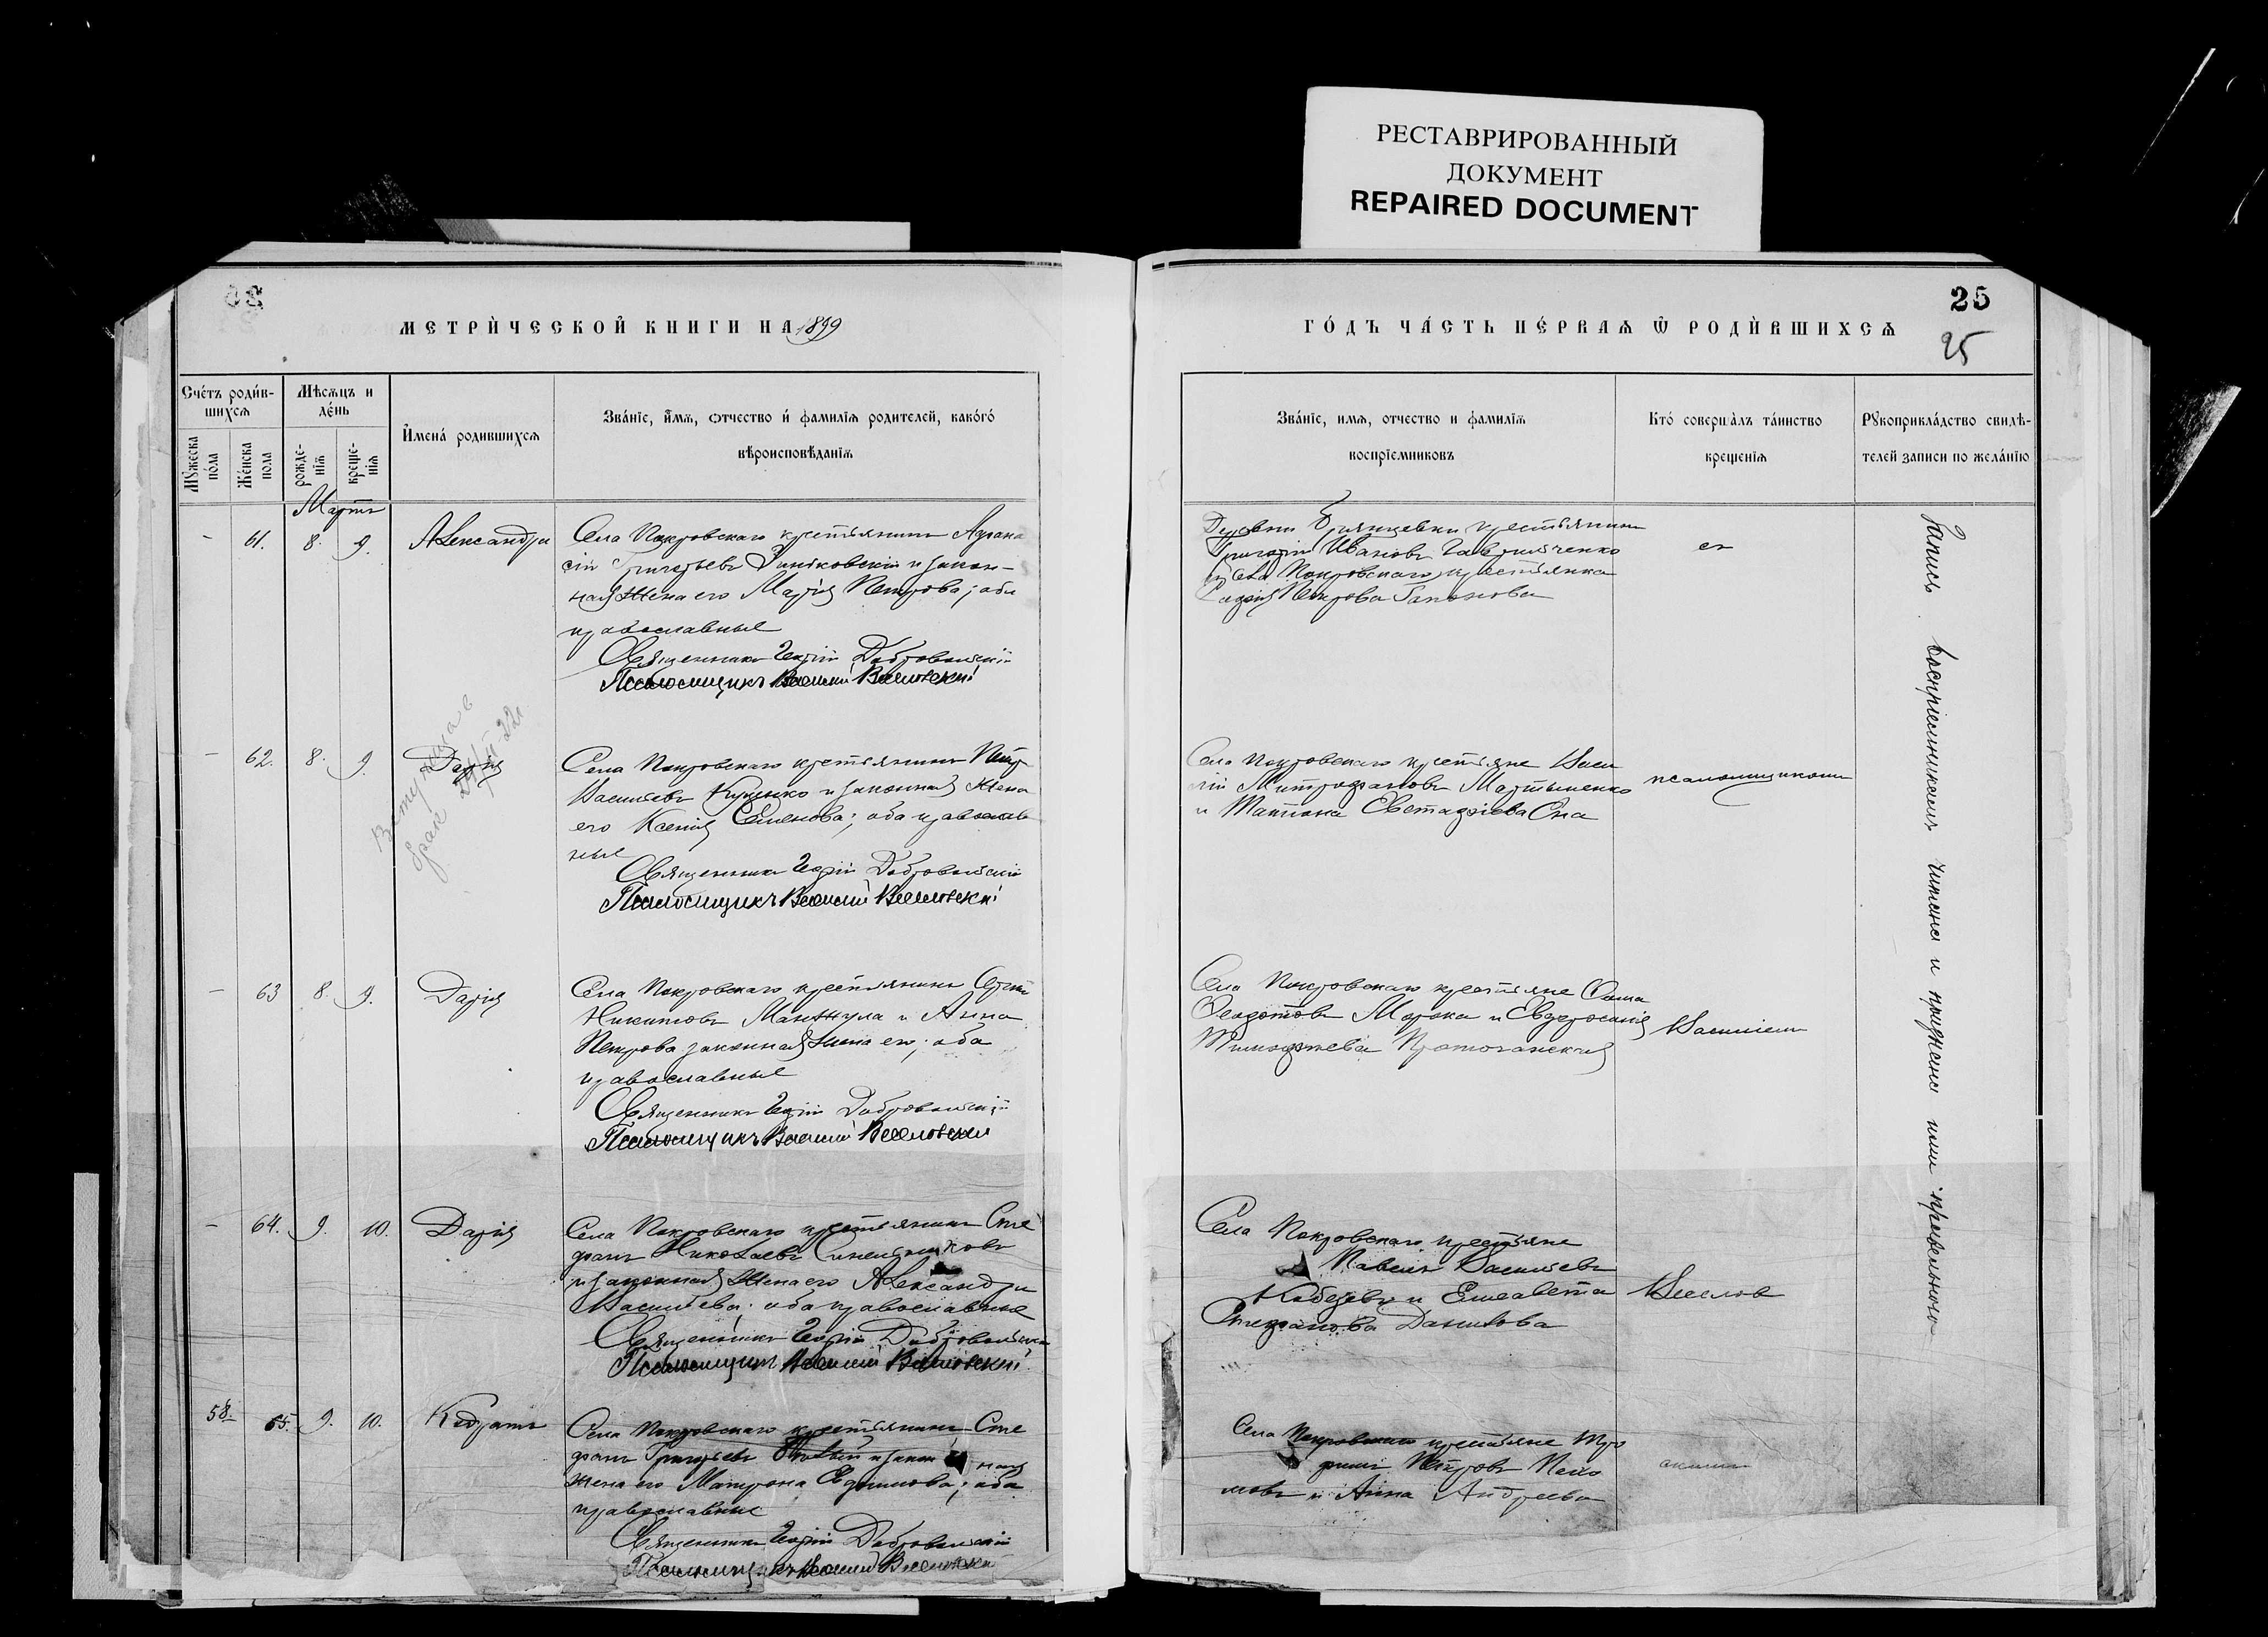 РЕСТАВРИРОВАННЫЙ
ДОКУМЕНТ
REPAIRED DOCUMENT
МЕТРИ́ЧЕСКОЙ КНИГИ НА 1899
ГО́ДЪ ЧА́СТЬ ПЕ́РВАѦ Ѿ РОДИ́ВШИХСѦ
25
25
Сче́тъ роди́в-
шихсѧ
Мѣсѧцъ и
де́нь
Мꙋ́жеска
по́ла
Же́нска
пола
рожде-
нїѧ
креще-
нїѧ
И҆мена́ родившихсѧ
Зва́нїе, и҆́мѧ, ѻтчество и҆ фамилїѧ родителей, како́гѡ́
вѣроисповѣ́данїѧ
Зва́нїе, имѧ, отчество и фамилїѧ
воспрїемниковъ
Кто́ соверша́лъ та́инство
крещенїѧ
Рꙋкоприкла́дство свидѣ-
телей записи по жела́нїю
Мартъ
- 61. 8. 9. Александра
Села Покровскаго крестьянинъ Афана
сій Григорьевъ Зинковскій и закон-
ная жена его Марія Петрова; оба
православные
Священникъ Георгій Добровольскій
Псаломщикъ Василій Веселовскій
Деревни Брянцевки крестьянинъ
Григорій Ивановъ Гавриличенко
и села Покровскаго крестьянка
Петрова Гапонова
съ
- 62. 8. 9. Дарія
Вступила в
брак
Села Покровскаго крестьянинъ Петръ
Васильевъ Куценко и законная жена
его Ксенія Семенова; оба православ
ные
Священникъ Георгій Добровольскій
Псаломщикъ Василій Веселовскій
Села Покровскаго крестьяне Васи
лій Митрофановъ Мартыненко
и Татіана Евстафіева Она
псаломщикомъ
- 63 8. 9. Дарія
Села Покровскаго крестьянинъ Сергѣй
Никитовъ Манжула и Анна
Петрова законная жена его; оба
православные
Священникъ Георгій Добровольскій
Псаломщикъ Василій Веселовскій
Села Покровскаго крестьяне Ѳома
Ѳеодотовъ Морока и Евфросинія
Тимофѣева
Василіемъ
- 64. 9. 10. Дарія
Села Покровскаго крестьянинъ Сте
фанъ Николаевъ Синельниковъ
и законная жена его Александра
Васильева; оба православные
Священникъ Георгій Добровольскій
Псаломщикъ Василій Веселовскій
Села Покровскаго крестьяне
Павелъ Васильевъ
и Елисавета
Стефанова Данилова
Веселов
58. 65. 9. 10. Кодратъ
Села Покровскаго крестьянинъ Сте
фанъ Григорьевъ и закон ная
жена его Матрона Евфимова; оба
православные
Священникъ Георгій Добровольскій
Псаломщикъ Василій Веселовскій
Села Покровскаго крестьяне Тро
фимъ Петровъ
и Анна Андреева
скимъ
Запись воспріемникамъ читана и признана ими правильною